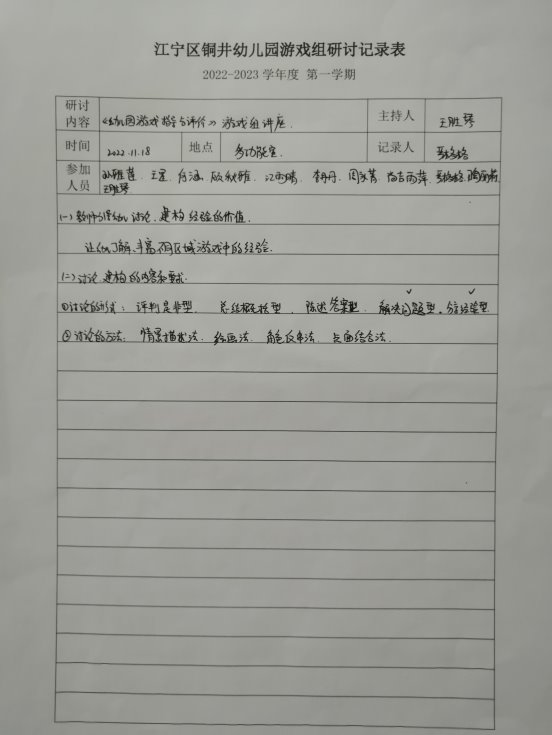 江宁区铜井幼儿园游戏组研讨记录表
2022-2023 学年度 第一学期
研讨内容 《幼儿园游戏指导与评价》游戏组讲座. 主持人 王胜琴
时间 2022.11.18 地点 多功能室. 记录人
参加人员 王星 李丹
王胜琴
(一) 教师与幼儿讨论、建构经验的价值.
让幼儿了解、丰富不同区域游戏中的经验.
(二) 讨论、建构的内容和要求.
①讨论的形式: 评判是非型. 总结概括型. 陈述答案型. 解决问题型. 分享经验型.
②讨论的方法: 情景描述法. 绘画法. 角色反串法. 点面结合法.